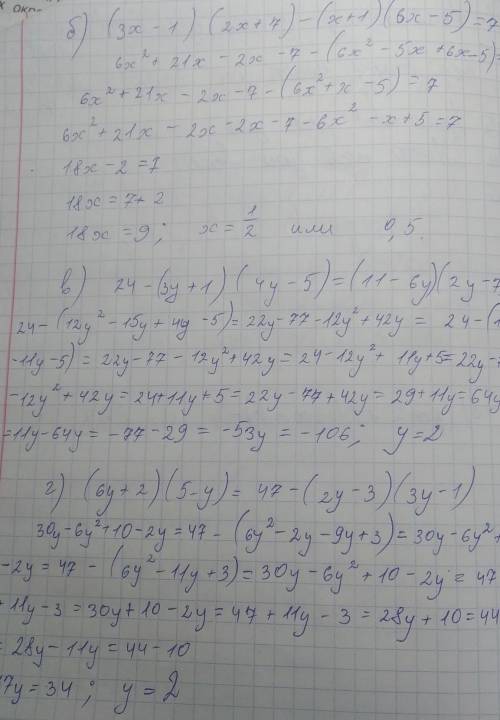 б) (3x - 1) (2x + 7) - (x + 1) (6x - 5) = 7
6x² + 21x - 2x - 7 - (6x² - 5x + 6x - 5) =
6x² + 21x - 2x - 7 - (6x² + x - 5) = 7
6x² + 21x - 2x - 2x - 7 - 6x² - x + 5 = 7
18x - 2 = 7
18x = 7 + 2
18x = 9; x = 1/2 или 0,5.
в) 24 - (3y + 1) (4y - 5) = (11 - 6y) (2y - 7
24 - (12y² - 15y + 4y - 5) = 22y - 77 - 12y² + 42y = 24 - (1
- 11y - 5) = 22y - 77 - 12y² + 42y = 24 - 12y² + 11y + 5 = 22y - 7
- 12y² + 42y = 24 + 11y + 5 = 22y - 77 + 42y = 29 + 11y = 64y
= 11y - 64y = - 77 - 29 = - 53y = - 106; y = 2
г) (6y + 2) (5 - y) = 47 - (2y - 3) (3y - 1)
30y - 6y² + 10 - 2y = 47 - (6y² - 2y - 9y + 3) = 30y - 6y² +
- 2y = 47 - (6y² - 11y + 3) = 30y - 6y² + 10 - 2y = 47
+ 11y - 3 = 30y + 10 - 2y = 47 + 11y - 3 = 28y + 10 = 44
= 28y - 11y = 44 - 10
17y = 34; y = 2